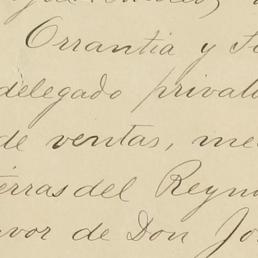 Orrantia y
delegado privati
de ventas, me
erras del Reyn
vor de Don Jo